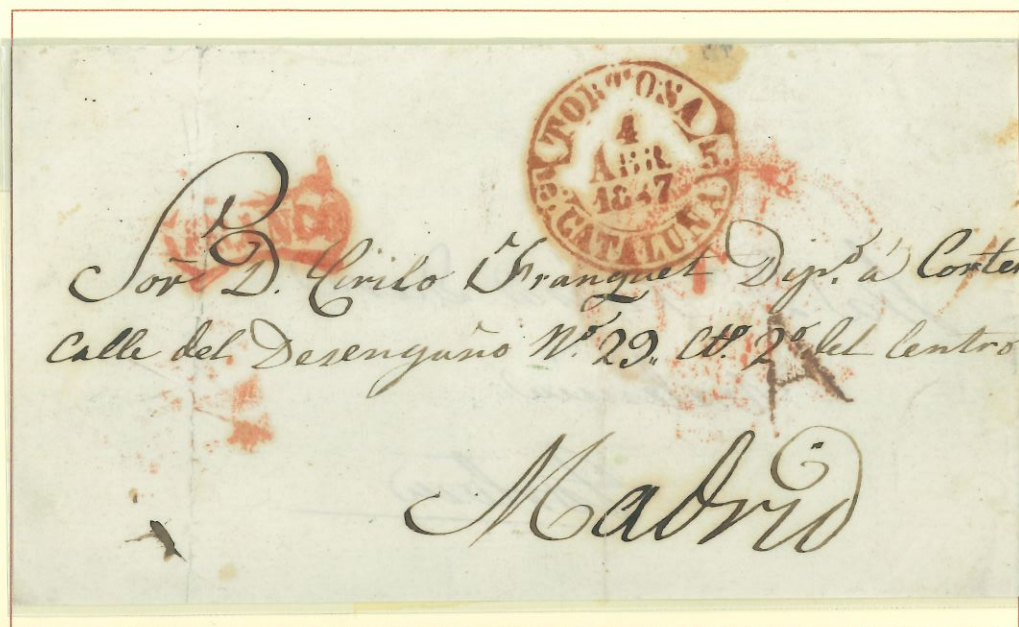 TORTOSA
4
ABR
1847
5.
CATALUÑA
FRANCO
Sor. D. Cirilo Franquet Dip.º á Cortes
Calle del Desengaño Nº 29. Ctº 2º del Centro
A
Madrid